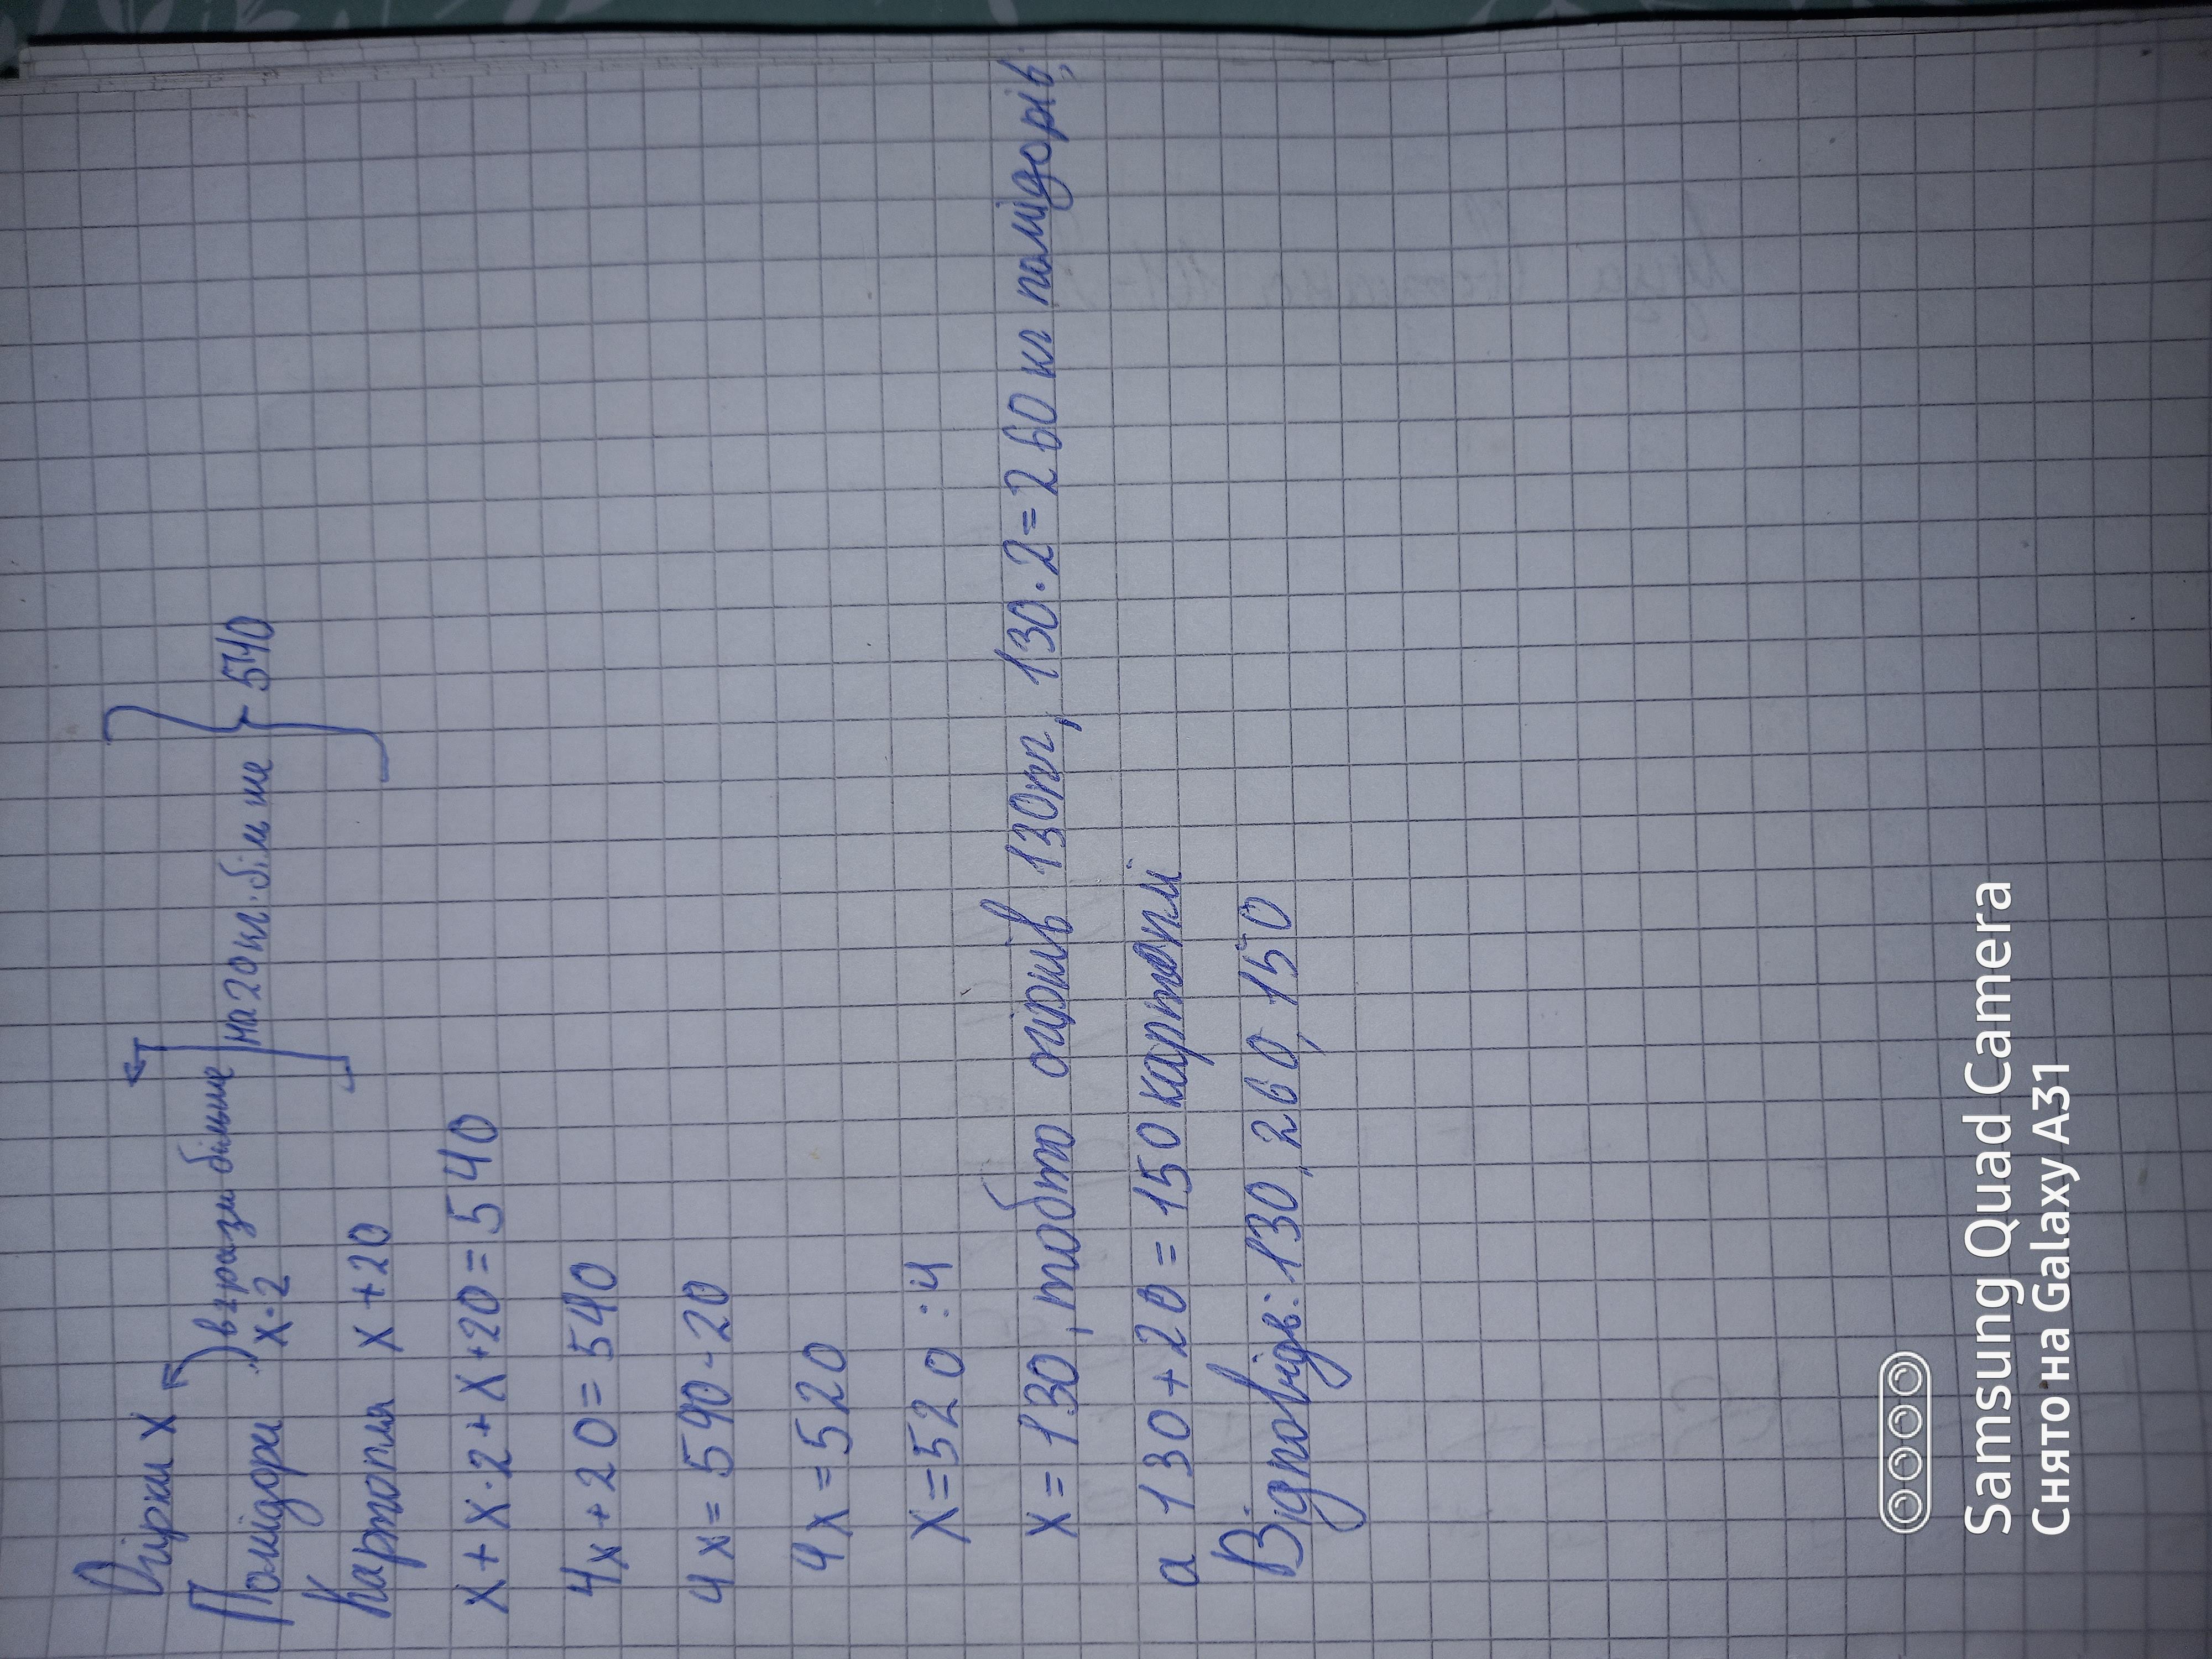 Огірки х
Помідори х·2 в 2 рази більше
Картопля х+20 на 20 кг. більше 540
х+х·2+х+20=540
4х+20=540
4х=540-20
4х=520
х=520:4
х=130, тобто огірків 130кг, 130·2=260 кг помідорів,
а 130+20=150 картоплі
Відповідь: 130, 260, 150
Samsung Quad Camera
Снято на Galaxy A31